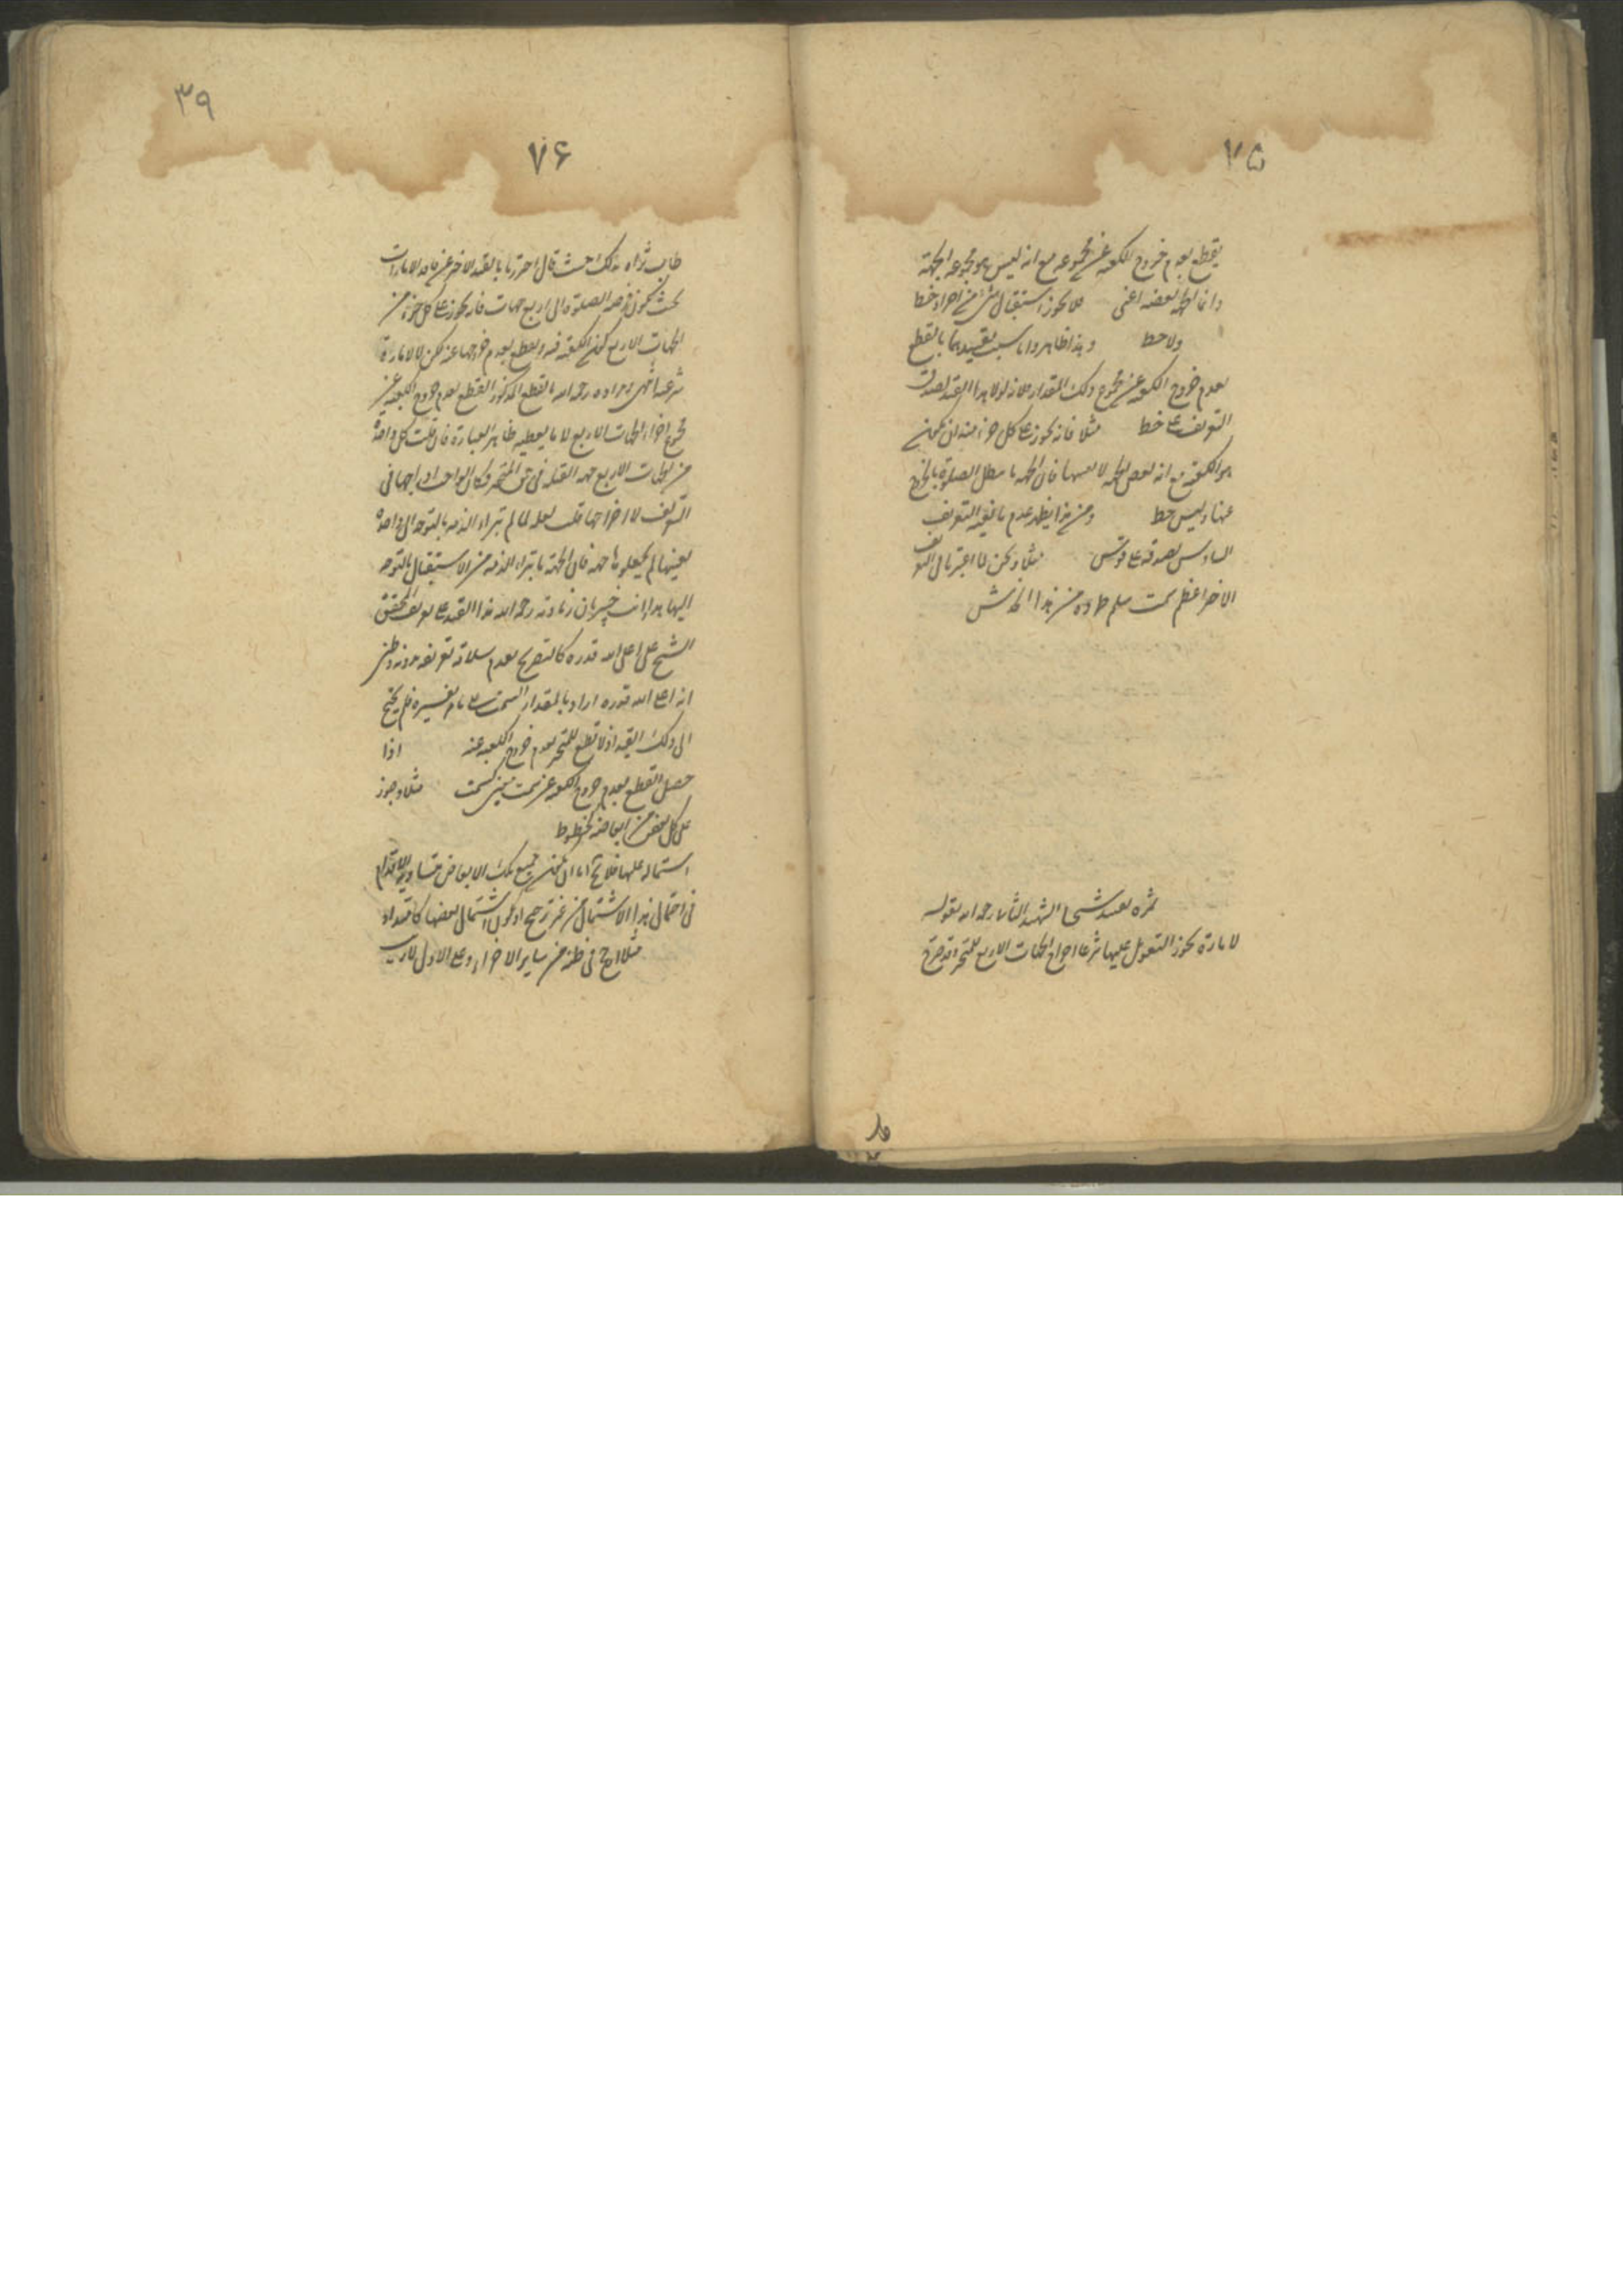 ٧٥
يقطع بعدم خروج الكعبه عن مجموعه مع انه ليس هو مجموعه الجهة
وانما الجهه بعضه اعنى فلا يجوز استقبال شئ من اجزاء خط
ولا خط وهذا ظاهر واما سبب تقييدهما بالقطع
بعدم خروج الكعبه عن مجموع ذلك المقدار فلانه لولا هذا القيد لصدق
التعريف على خط مثلا فانه يجوز على كل جزء منه ان يكون
هو الكعبه مع انه بعض الجهه لا نفسها فان الجهه ما يبطل الصلوة بالخروج
عنها وليس خط ومن هذا يظهر عدم مانعيه التعريف
السادس لصدقه على قوس مثلا ولكن لما اعتبر
الاخر اعظم سمت سلم طرده من هذا الخدش
ثره بقيد شيخنا الشهيد الثانى رحمه الله بقوله
لامارة يجوز التعويل عليها شرعا اخراج الجهات الاربع للمتحير وقد صرح
٣٩
٧۶
طاب ثراه بذلك حيث قال احترزنا بالقيد الاخير عن فاقد الامارات
بحيث يكون فرضه الصلوة الى اربع جهات فانه يجوز على كل جزء من
الجهات الاربع كون الكعبه فيه ويقطع بعدم خروجها عنه لكن لا لامارة
شرعية انتهى ومراده رحمه الله بالقطع المذكور القطع بعدم خروج الكعبه عن
مجموع اجزاء الجهات الاربع لا ما يعطيه ظاهر العبارة فان قلت كل واحدة
من الجهات الاربع جهه القبله فى حق المتحير فكان الواجب ادراجها فى
التعريف لا اخراجها قلت لعله لما لم تبراء الذمه بالتوجه الى واحدة
بعينها لم يجعلوها جهه فان الجهة ما تبراء الذمه من الاستقبال بالتوجه
اليها هذا وانت خبير بان زيادته رحمه الله هذا القيد على تعريف المحقق
الشيخ على اعلى الله قدره كالتصريح بعدم سلامة تعريفه بدونه وظنى
انه اعلى الله قدره اراد بالمقدار السمت على ما مر تفسيره فلم يحتج
الى ذلك القيد اذ لا قطع للمتحير بعدم خروج الكعبه عنه اذا
حصل القطع بعدم خروج الكعبه عن سمت مثلا وجوز
على كل بعض من ابعاضه كخطوط
استماله عليها فلا يخ اما ان يكون جميع تلك الابعاض متساوية الاقدام
فى احتمال هذا الاشتمال من غير ترجيح او يكون اشتمال بعضها
مثلا ارجح فى ظنه من ساير الاجزاء وعلى الاول لا ريب